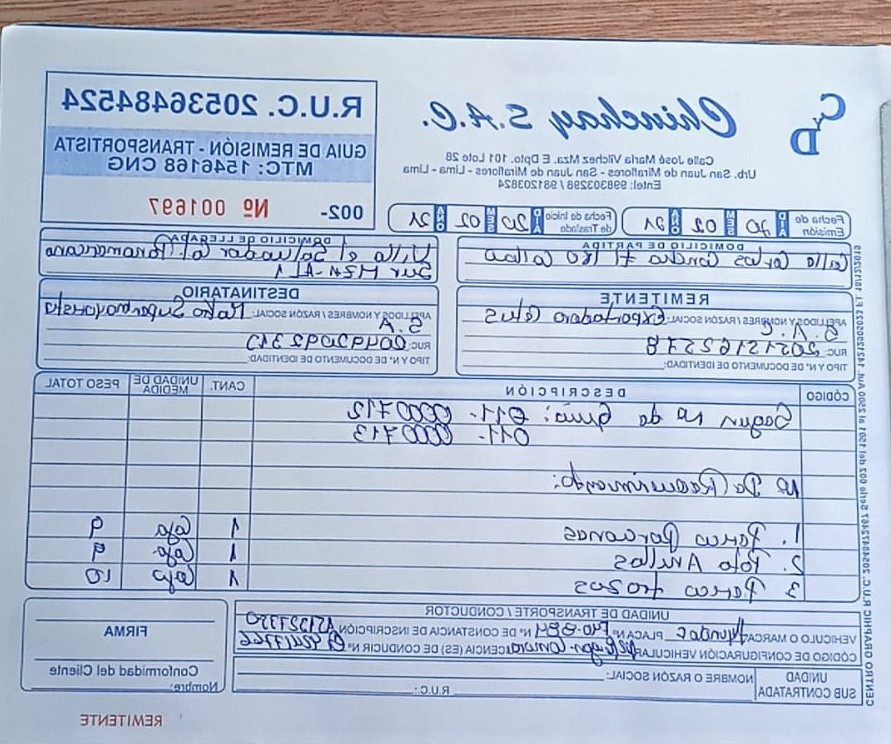 CyD
Chinchay S.A.C.
Calle José María Vilchez Mza. E Dpto. 101 Lote 28
Urb. San Juan de Miraflores - San Juan de Miraflores - Lima - Lima
Entel: 998303298 / 981203824
R.U.C. 20536484524
GUIA DE REMISIÓN - TRANSPORTISTA
MTC: 1546168 CNG
002- Nº 001697
Fecha de Emisión DIA 20 MES 02 AÑO 21
Fecha de Inicio de Traslado DIA 20 MES 02 AÑO 21
DOMICILIO DE PARTIDA
Calle Carlos Concha # 180 Callao
DOMICILIO DE LLEGADA
Villa el Salvador Panamericana
Sur MZN-A
REMITENTE
APELLIDOS Y NOMBRES / RAZÓN SOCIAL: Exportadora Cetus
S.A.C
RUC:
TIPO Y N° DE DOCUMENTO DE IDENTIDAD:
DESTINATARIO
APELLIDOS Y NOMBRES / RAZÓN SOCIAL: Makro Supermayorista
S.A
RUC:
TIPO Y N° DE DOCUMENTO DE IDENTIDAD:
CÓDIGO DESCRIPCIÓN CANT. UNIDAD DE MEDIDA PESO TOTAL
Segun no de Guia: 011- 0000712
011- 0000713
No De Requerimiento:
1. Perico Porciones 1 Caja 9
2. Pota Anillos 1 Caja 9
3 Perico trozos 1 Caja 10
UNIDAD DE TRANSPORTE / CONDUCTOR
VEHICULO O MARCA: Hyundai PLACA N° N° DE CONSTANCIA DE INSCRIPCIÓN
CÓDIGO DE CONFIGURACIÓN VEHICULAR LICENCIA (ES) DE CONDUCIR N°
UNIDAD SUB CONTRATADA NOMBRE O RAZÓN SOCIAL:
R.U.C.:
FIRMA
Conformidad del Cliente
Nombre:
REMITENTE